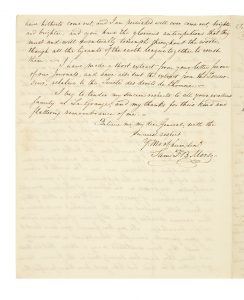 have hitherto come out, and I am persuaded will ever come out brighter
and brighter, and you have the glorious anticipations that they
must and will eventually triumph throughout the world,
though all the tyrants of the earth league together to crush
them.
I have made a short extract from your letter for one
of our journals, and
relative to the
to tender my sincere respects to all your excellent
family at La Grange, and my thanks for their kind and
flattering remembrance of me.
Believe me my dear General, with the
sincerest respect
Yr Most
Saml. F. B. Morse.